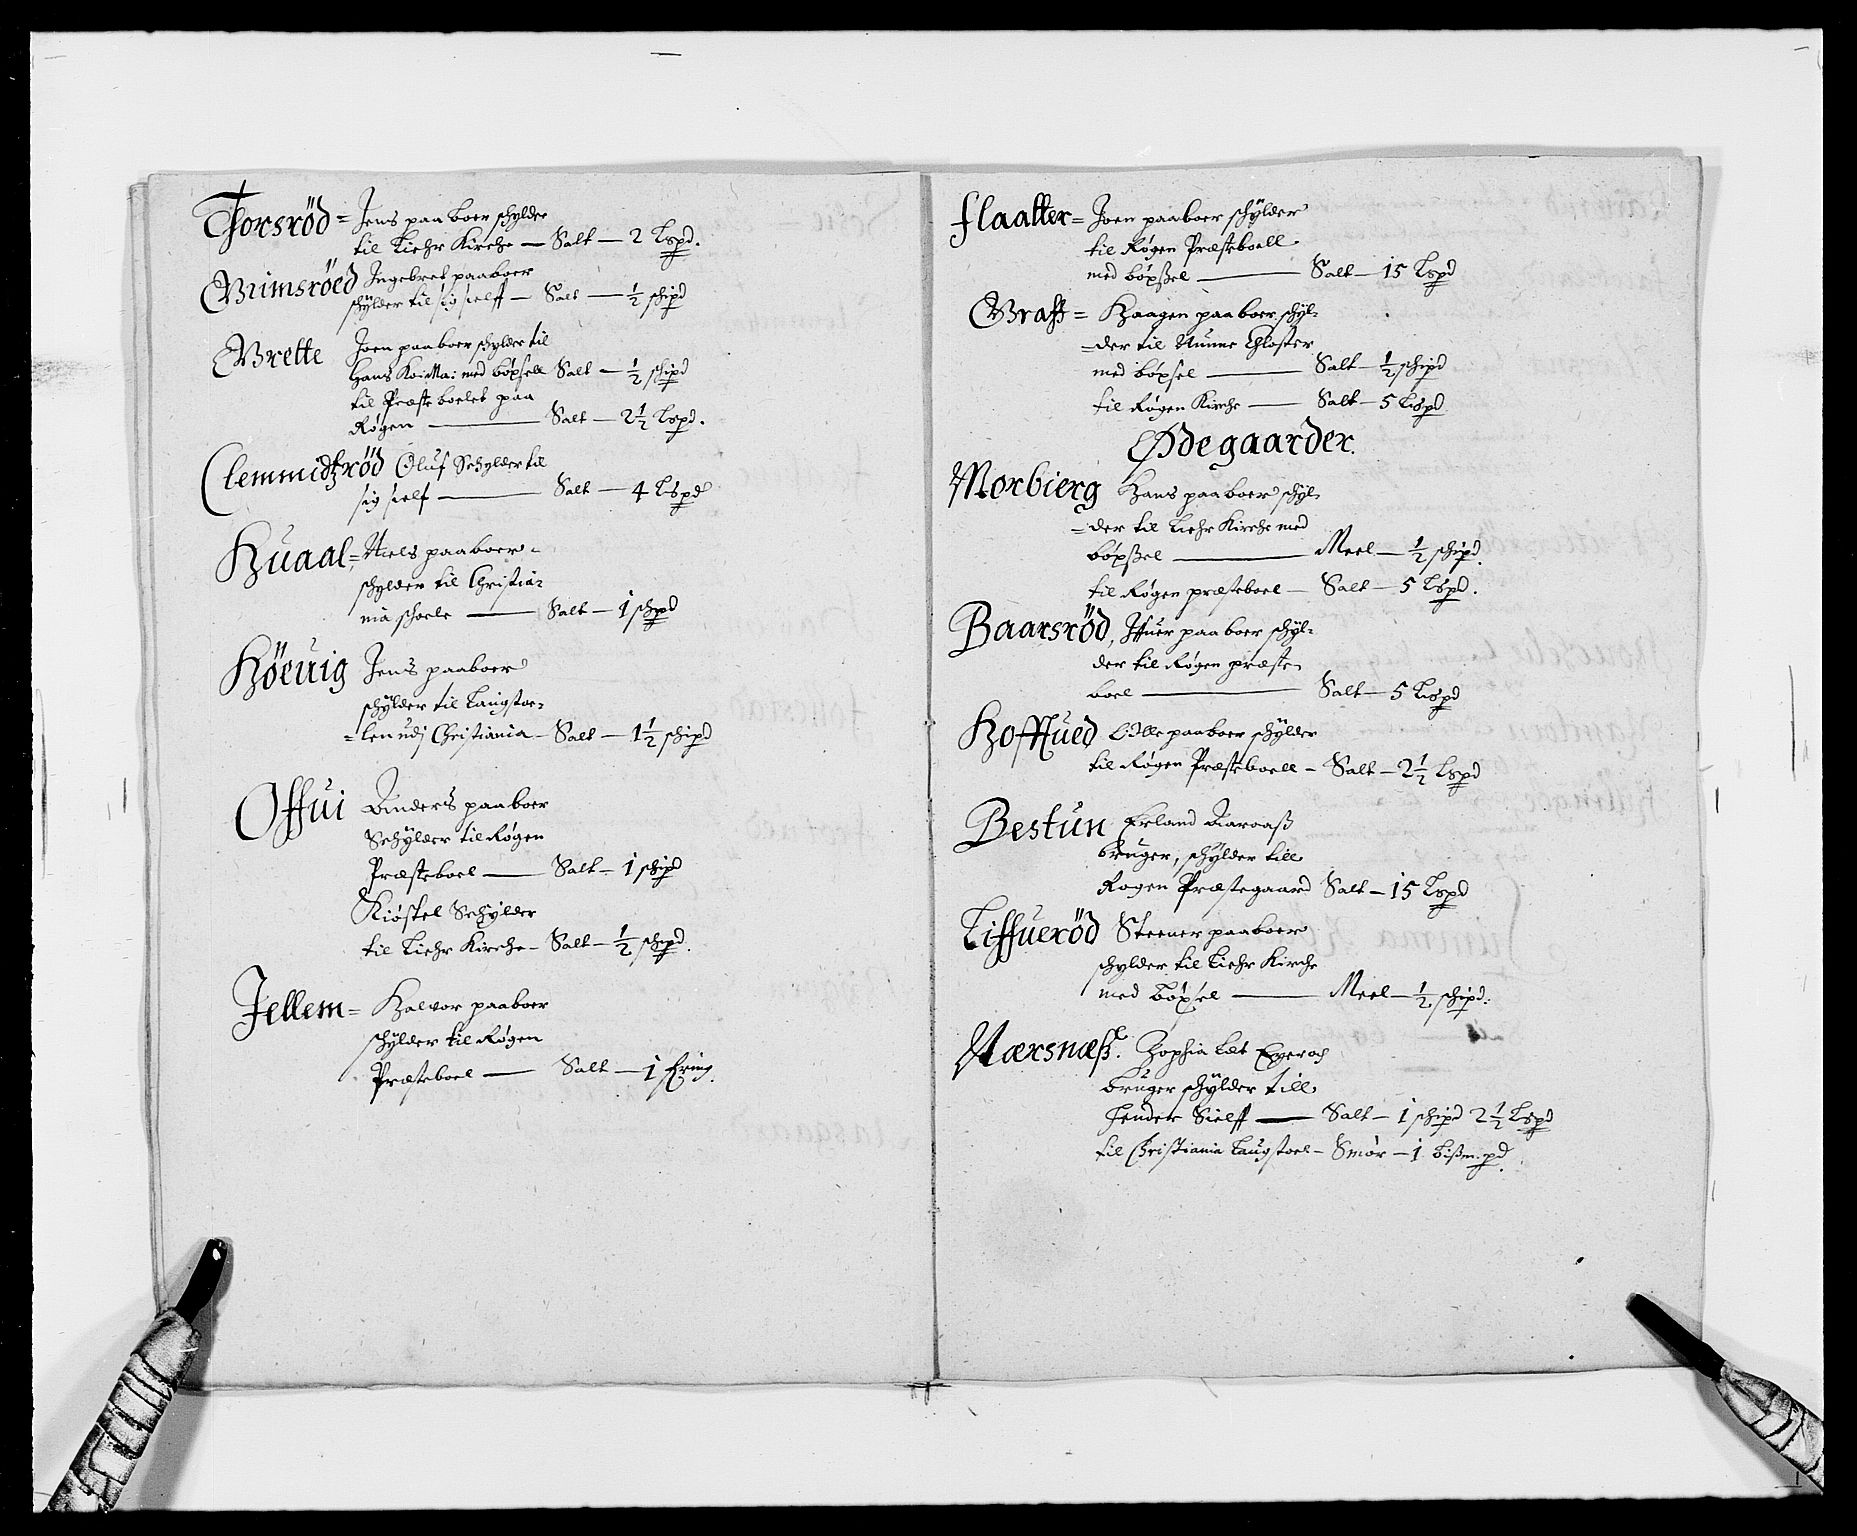 Thorsröd = Jens paa boer schylder
til Liehr Kirche — Salt — 2 Lspd.
Grimsröed Ingebret paaboer
schÿlder til sig sielff — Salt — ½ schipd
Grette Joen paaboer schylder til
Hans Koi Ma: med böxsell Salt — ½ schipd
til Præste boelet paa
Røgen — Salt — 2½ Lspd.
Clemmidtzröd Oluf Schylder til
sig sielf — Salt — 4 Lspd
Huaal = Niels paaboer
schylder til Christia=
nia schoele — Salt — 1 schpd
Höeuig Jens paaboer
schÿlder til Laugstoe=
=len udj Christiania — Salt — 1½ schipd
Offui Anders paaboer
Schÿlder til Røgen
Præsteboel — Salt — 1 schipd
Kiøstel Schÿlder
til Liehr Kirche — Salt — ½ schipd.
Jellem = Halvor paaboer
schÿlder til Røgen
Præsteboel — Salt — 1 fring.
Flaatter = Joen paaboer schÿlder
til Røgen Præsteboell
med böxsel — Salt — 15 Lspd
Graff = Haagen paaboer schÿl=
=der til Nunne Closter
med böxsel — Salt — ½ schipd
til Røgen Kirche — Salt — 5 Lispd
Ødegaarder.
Morbierg Hans paaboer schÿl=
=der til Liehr Kirche med
böxsel — Meel — ½ schipd.
til Røgen præsteboel — Salt — 5 Lspd.
Baarsröd, Iffuer paaboer schÿl=
der til Røgen præste
boel — Salt — 5 Lispd
Hoffued Olle paaboer schÿlder
til Røgen Præsteboell — Salt — 2½ Lspd
Bestun Erland Aaraaß
bruger, schÿlder till
Rogen Præstegaard Salt — 15 Lspd
Liffueröd Steener paaboer
schylder til Liehr Kirche
med böxsel — Meel — ½ schipd.
Nærsnæß. Zophia bruger schÿlder till
Sielff — Salt — 1 schipd 2½ Lspd
til Christiania Laugstoel — Smör — 1 bißm. pd.